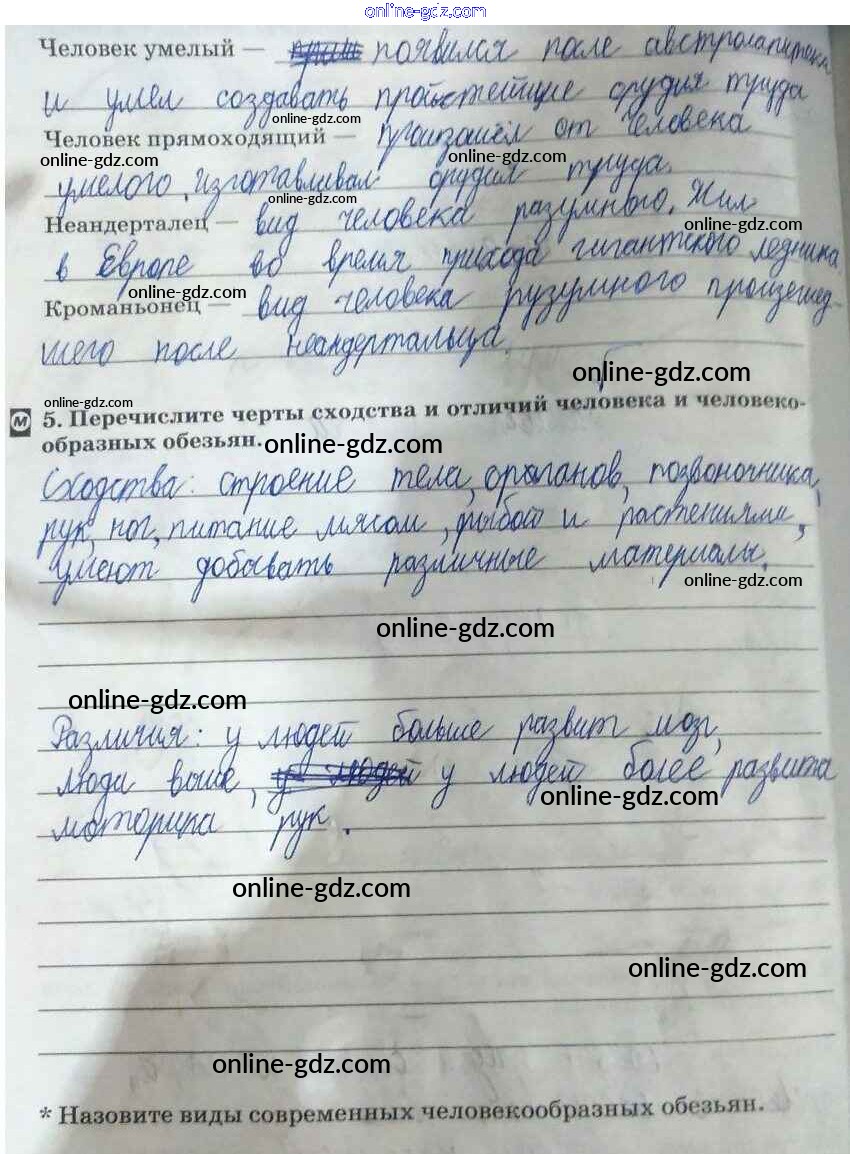 online-gdz.com
Человек умелый — появился после австролапитека
и умел создавать простейщие орудия труда
online-gdz.com
Человек прямоходящий — произашёл от человека
online-gdz.com online-gdz.com
умелого, изготавливал орудия труда.
online-gdz.com
Неандерталец — вид человека разумного. Жил
online-gdz.com
в Европе во время прихода гигантского ледника
online-gdz.com
Кроманьонец — вид человека рузумного произешед-
шего после неандертальца.
online-gdz.com
online-gdz.com
М 5. Перечислите черты сходства и отличий человека и человеко-
образных обезьян. online-gdz.com
Сходства: строение тела, органов, позвоночника,
рук, ног, питание мясом, рыбой и растениями,
умеют добывать различные материалы.
online-gdz.com
online-gdz.com
online-gdz.com
Различия: у людей больше развит мозг,
люди выше, у людей у людей более развита
online-gdz.com
моторика рук.
online-gdz.com
online-gdz.com
online-gdz.com
* Назовите виды современных человекообразных обезьян.